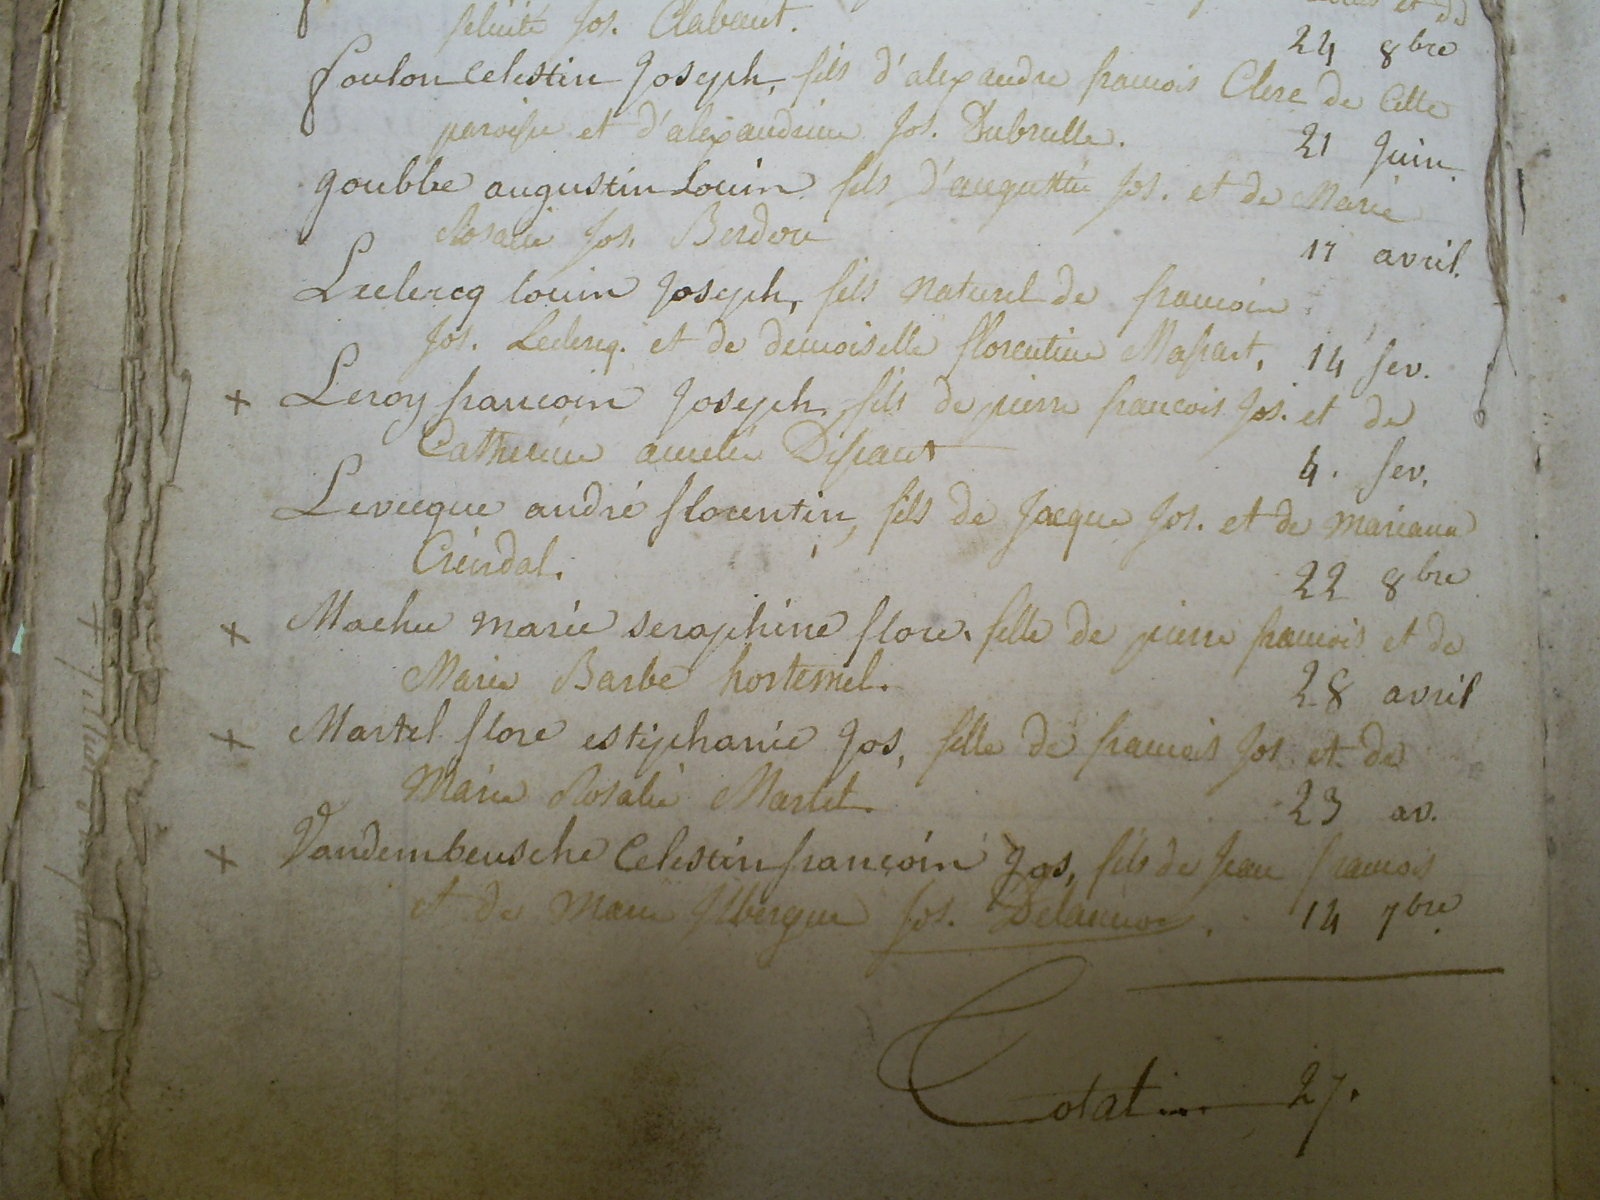 felicité Jos. Clabaut.
24 8bre
foulon celestin Joseph, fils d'alexandre francois Clerc de Cette
paroisse et d'alexandrine Jos. Dubrulle.
21 Juin.
goubbe augustin Louis fils d'augustin Jos. et de Marie
Rosalie Jos. Berdou
17 avril.
Leclercq Louis Joseph, fils naturel de francois
Jos. Leclercq. et de demoiselle florentine Masart, 14 fev.
+ Leroy francois Joseph, fils de pierre francois Jos. et de
Catherine amelie Disaut
4. fev.
Levecque andré florentin, fils de Jacque Jos. et de mariann
Creindal.
22 8bre
+ Machu marie seraphine flore. fille de pierre francois et de
Marie Barbe hortemel.
28 avril
+ Martel flore estiphanie Jos, fille de francois Jos et de
Marie Rosalie Martel.
23 av.
+ Vandembeusche Celestin françois Jos, fils de Jean francois
et de Marie Jsbergue Jos. Delannoe. 14 7bre.
Total 27.